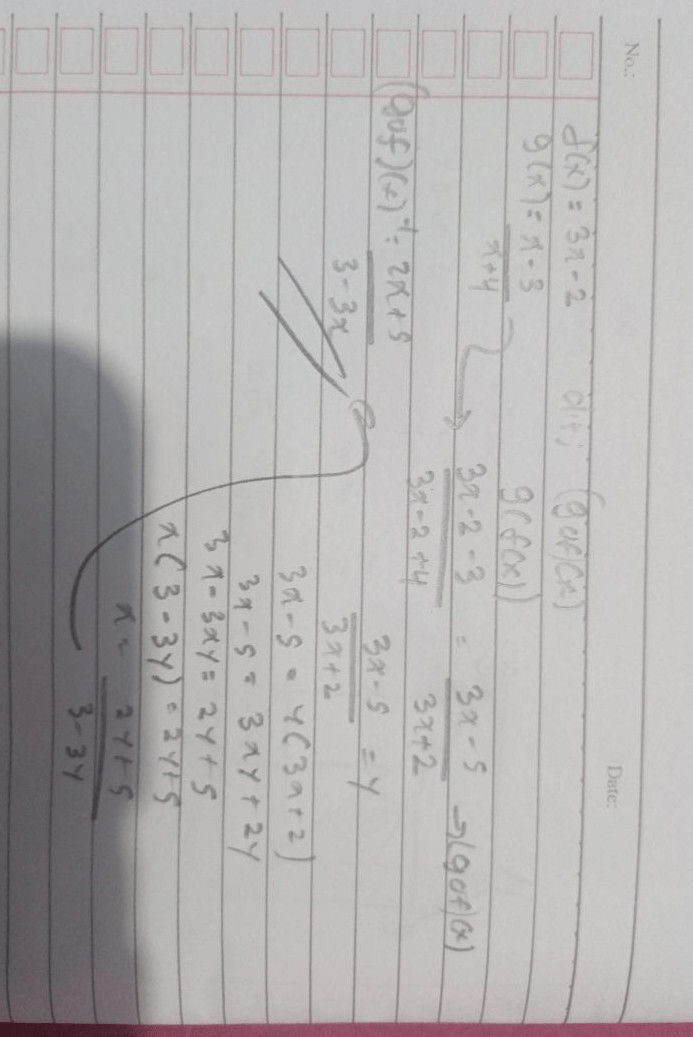 No.:
Date:
f(x) = 3x - 2 Dit; (gof)(x)
g(x) = x - 3 g(f(x))
x + 4
3x - 2 - 3 = 3x - 5 → (gof)(x)
3x - 2 + 4 3x + 2
(gof)(x)⁻¹ : 2x + 5
3 - 3x
3x - 5 = y
3x + 2
3x - 5 = y(3x + 2)
3x - 5 = 3xy + 2y
3x - 3xy = 2y + 5
x(3 - 3y) = 2y + 5
x = 2y + 5
3 - 3y